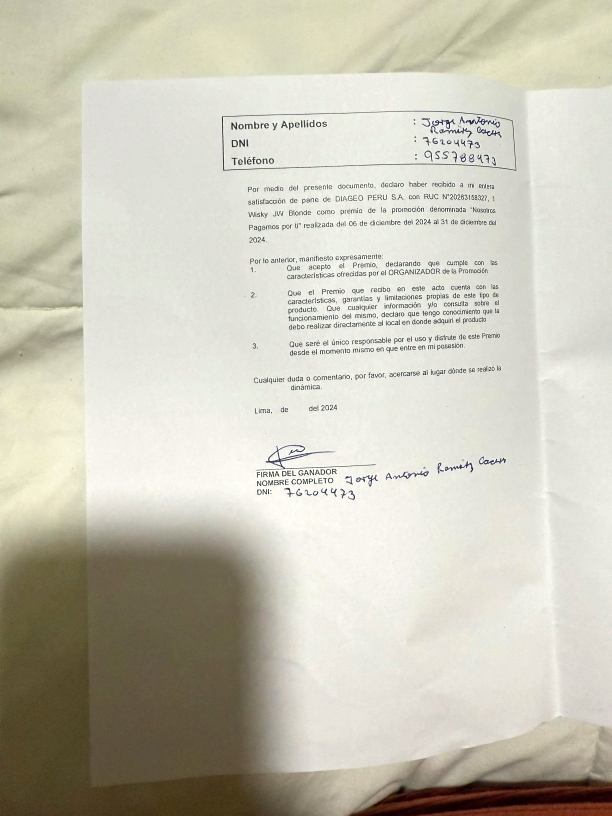 Nombre y Apellidos : Jorge Antonio
Ramirez Caceres
DNI : 76204473
Teléfono : 955788473
Por medio del presente documento, declaro haber recibido a mi entera
satisfacción de parte de DIAGEO PERU S.A. con RUC N°20263158327, 1
Wisky JW Blonde como premio de la promoción denominada "Nosotros
Pagamos por ti" realizada del 06 de diciembre del 2024 al 31 de diciembre del
2024.
Por lo anterior, manifiesto expresamente:
1. Que acepto el Premio, declarando que cumple con las
características ofrecidas por el ORGANIZADOR de la Promoción
2. Que el Premio que recibo en este acto cuenta con las
características, garantías y limitaciones propias de este tipo de
producto. Que cualquier información y/o consulta sobre el
funcionamiento del mismo, declaro que tengo conocimiento que la
debo realizar directamente al local en donde adquirí el producto
3. Que seré el único responsable por el uso y disfrute de este Premio
desde el momento mismo en que entre en mi posesión.
Cualquier duda o comentario, por favor, acercarse al lugar dónde se realizó la
dinámica.
Lima, de del 2024
FIRMA DEL GANADOR
NOMBRE COMPLETO Jorge Antonio Ramirez Caceres
DNI: 76204473